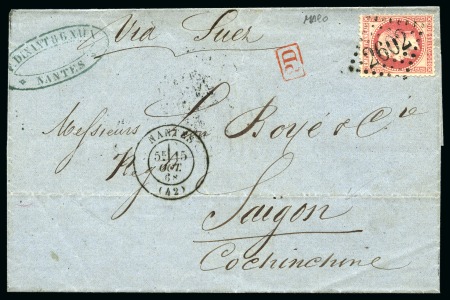 Via Suez
PD
2602
NANTES
Messieurs Boyé & Cie
NANTES
5E 15
OCT.
68
(42)
Saigon
Cochinchine